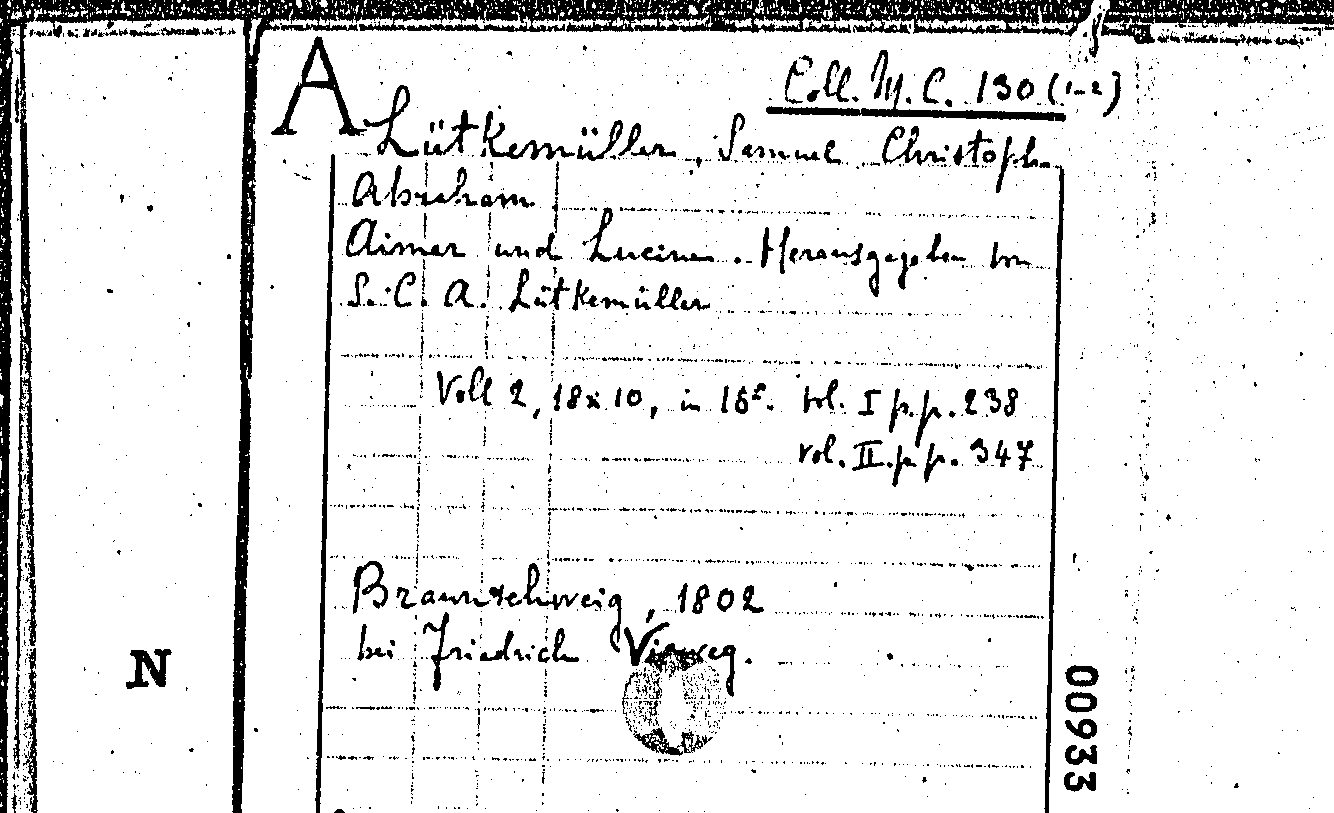 A
Coll. M. C. 130 (1-2)
Lütkemüller, Samuel Christoph
Abraham
Aimar und Lucine. Herausgegeben von
S. C. A. Lütkemüller
Voll 2, 18x10, in 16º. vol. I p.p. 238
vol. II. p.p. 347
Braunschweig, 1802
bei Friedrich Vieweg.
N
00933